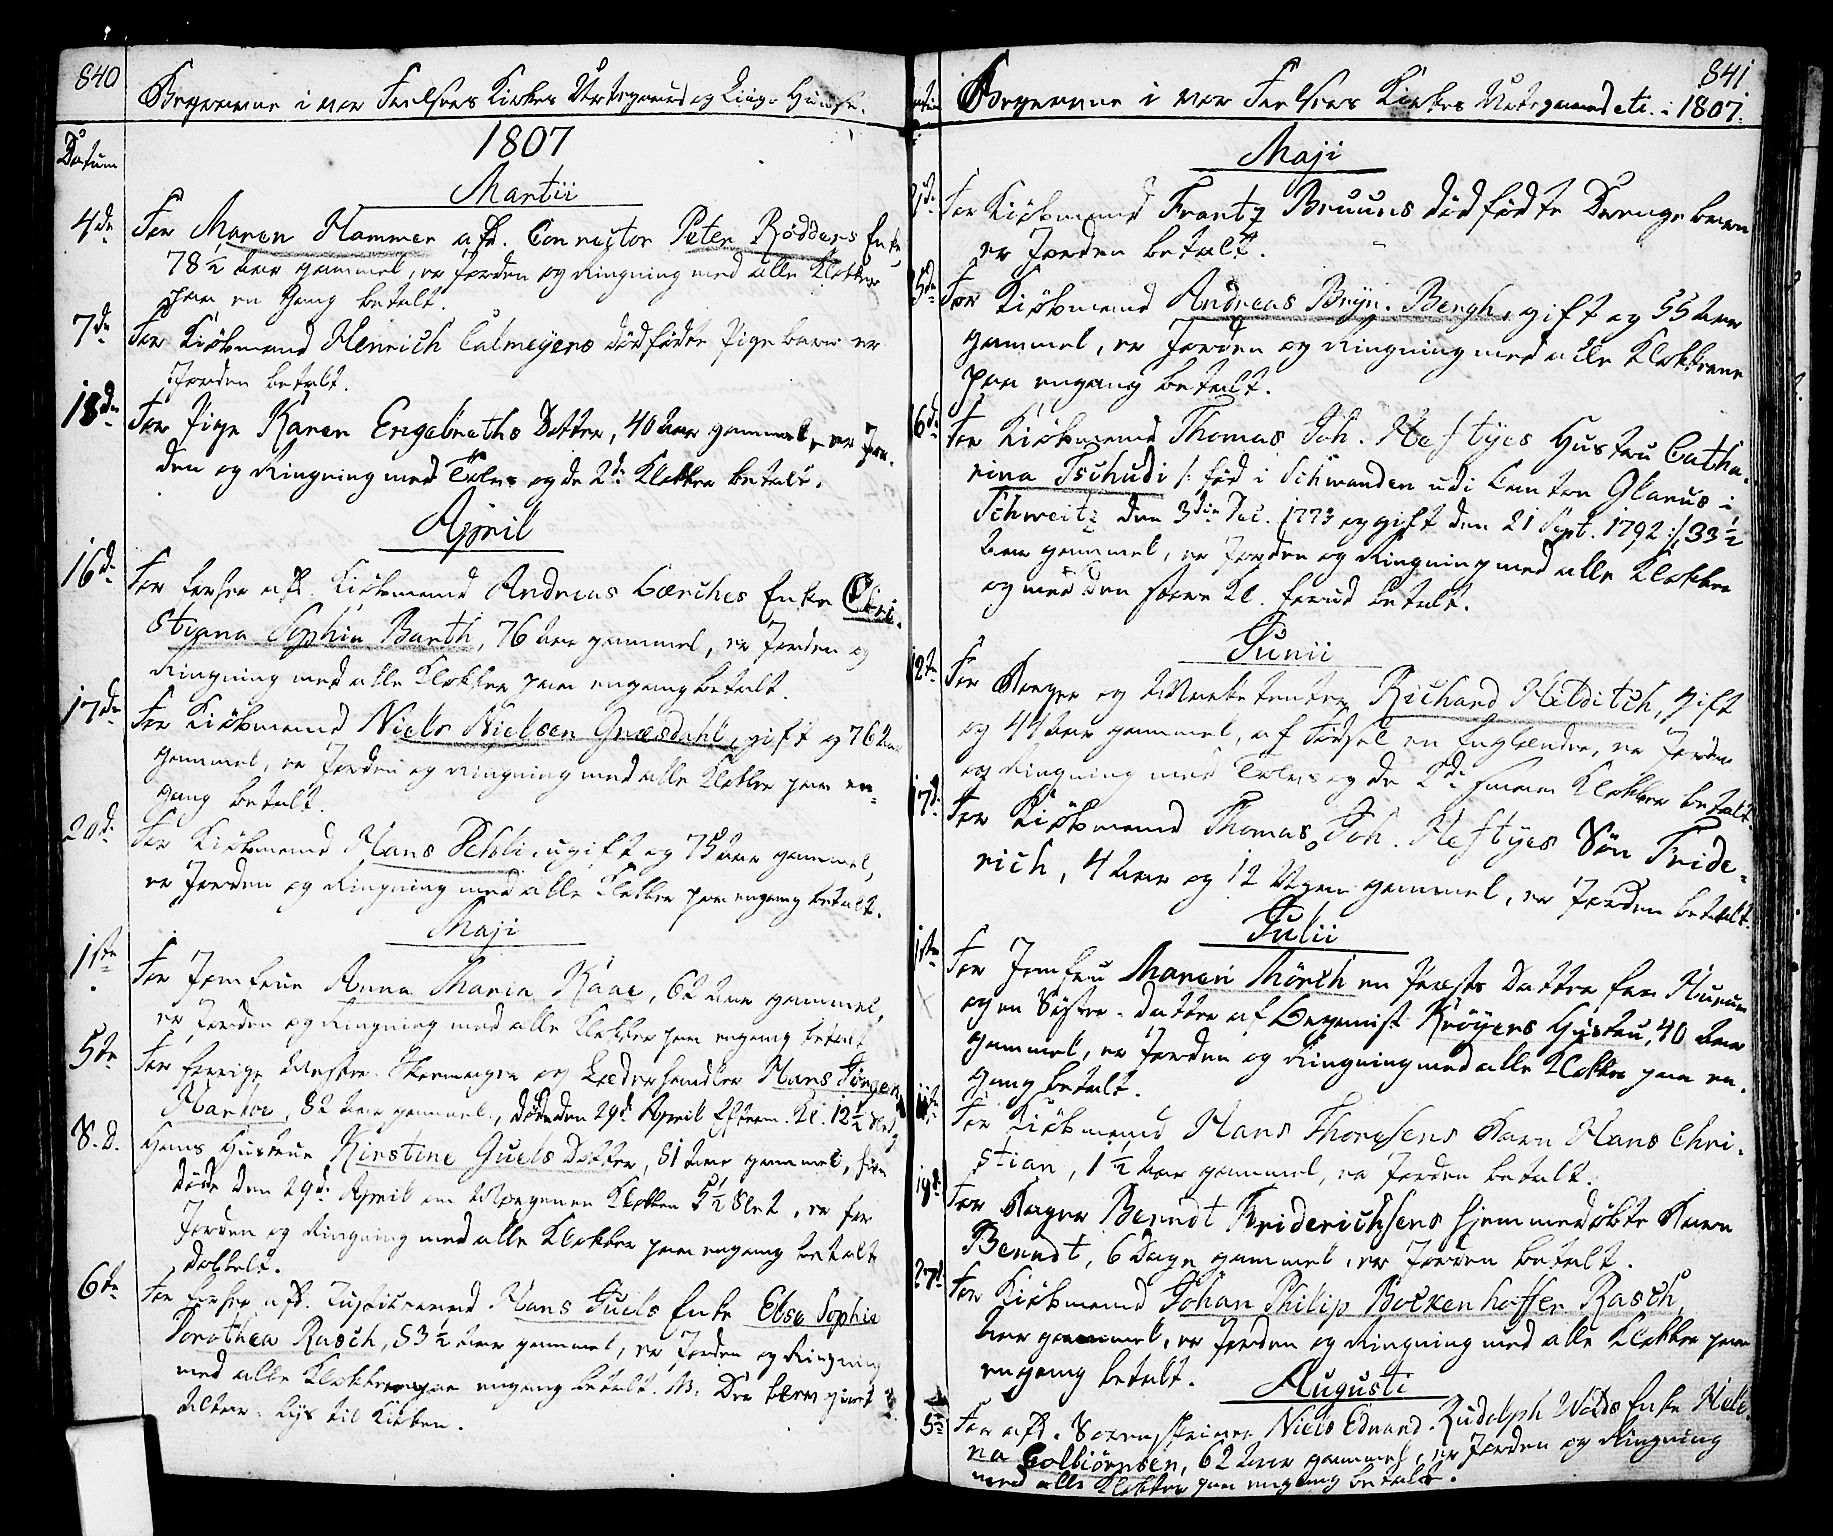 840
Begravne i vor Frelsers Kirkes Urtegaard og Liig- Huuse.
Datum
1807
Martii
4de For Maren Hammer afd. Conrector Peter Rødders Enke
78 1/2 Aar gammel, er Jorden og Ringning med alle Klokker
paa en Gang betalt.
7de For Kiöbmand Henrich Calmeyers dödfödte Pige barn er
Jorden betalt.
18de For Pige Karen Engebreths Datter, 40 Aar gammel, er Jor-
den og Ringning med Tolv og de 2de Klokker betalt.
April
16de For afd. Kiöbmand Andreas Lærches Enke Chri-
stiana Sophia Barth, 76 Aar gammel, er Jorden og
Ringning med alle Klokker paa engang betalt.
17de For Kiöbmand Niels Nielsen Græsdahl, gift og 76 Aar
gammel, er Jorden og Ringning med alle Klokker paa en-
gang betalt.
20de For Kiöbmand Hans ugift og 75 Aar gammel,
er Jorden og Ringning med alle Klokker paa engang betalt.
Maji
1ste For Jomfrue Anna Maria Kaae, 62 Aar gammel,
er Jorden og Ringning med alle Klokker paa engang betalt
5te For og Læderhandler Hans Jörgen
82 Aar gammel, döde den 29de April Kl. 12 1/2
S. D. Hans Hustrue Kirstine Guels Datter, 81 Aar gammel, som
döde den 29de April om Morgenen Klokken 5 1/2 Slet, er for
Jorden og Ringning med alle Klokker paa engang betalt
dobbelt.
6te For afd. Hans Juels Enke Elsa Sophia
Dorothea Rasch, 83 1/2 Aar gammel, er Jorden og Ringning
med alle Klokkerne paa engang betalt. NB. Der blev givet 2
Alter-Lys til Kirken.
841
Begravne i vor Frelsers Kirkes Urtegaard etc. i 1807.
Maji
For Kiöbmand Frantz Bruuns dödfödte Drengebarn
er Jorden betalt.
For Kiöbmand Andreas Bryn. Bergh, gift og 55 Aar
gammel, er Jorden og Ringning med alle Klokkerne
paa engang betalt.
For Kiöbmand Thomas Joh. Heftyes Hustru Catha-
rina Tschudi /: föd i Schwanden udi Canton Glarus i
Schweitz den 3die Dec. 1773 og gift den 21 Sept. 1792 :/ 33 1/2
Aar gammel, er Jorden og Ringning med alle Klokker
og med den store Kl. forud betalt.
Junii
12te For Borger og Richard Hilditch, gift
og 44 Aar gammel, af Födsel en Englænder, er Jorden
og Ringning med Tolv og de 2de smaa Klokker betalt.
17de For Kiöbmand Thomas Joh. Heftyes Sön Fride-
rich, 4 Aar og 12 Uger gammel, er Jorden betalt.
Julii
1ste For Jomfru Maren Mörch en Præsts Datter fra Hurum
og en Söster-Datter af Organist Kröyers Hustru, 40 Aar
gammel, er Jorden og Ringning med alle Klokker paa en-
gang betalt.
11te For Kiöbmand Hans Thoresens Barn Hans Chri-
stian, 1 1/2 Aar gammel, er Jorden betalt.
For Bager Berndt Friderichsens hjemmedöbte Barn
Berndt, 6 Dage gammel, er Jorden betalt.
27de For Kiöbmand Johan Philip Bockenhoffer Rasch,
Aar gammel, er Jorden og Ringning med alle Klokker paa
engang betalt.
Augusti
5te For afd. Sorenskriver Niels Edvard Rudolph Wolds Enke Hele-
na Colbiörnsen, 62 Aar gammel, er Jorden og Ringning
med alle Klokker paa engang betalt.